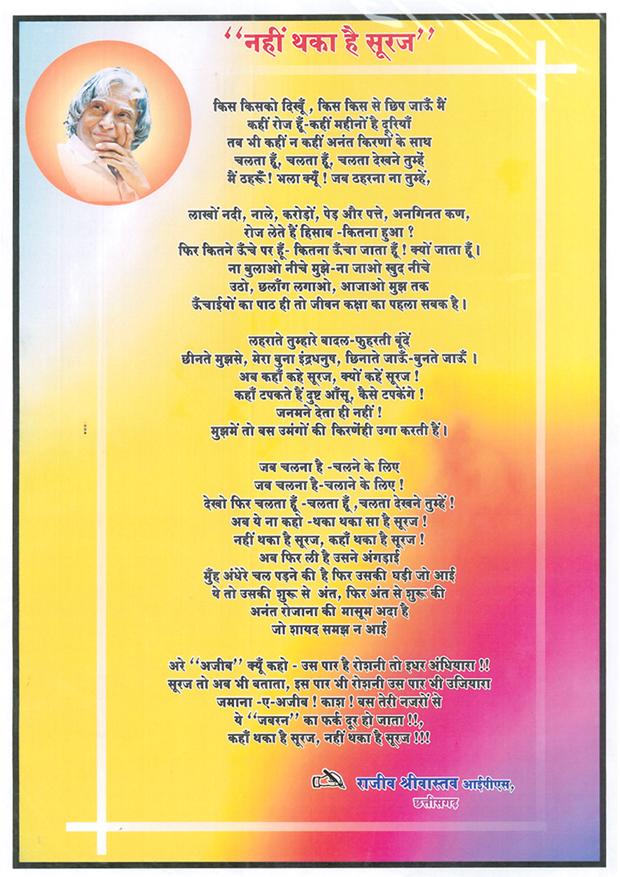 “नहीं थका है सूरज”
किस किसको दिखूँ , किस किस से छिप जाऊँ मैं
कहीं रोज हूँ-कहीं महीनों है दूरियाँ
तब भी कहीं न कहीं अनंत किरणों के साथ
चलता हूँ, चलता हूँ, चलता देखने तुम्हें
मैं ठहरूँ! भला क्यूँ ! जब ठहरना ना तुम्हें,
लाखों नदी, नाले, करोड़ों, पेड़ और पत्ते, अनगिनत कण,
रोज लेते हैं हिसाब -कितना हुआ ?
फिर कितने ऊँचे पर हूँ- कितना ऊँचा जाता हूँ ! क्यों जाता हूँ।
ना बुलाओ नीचे मुझे-ना जाओ खुद नीचे
उठो, छलाँग लगाओ, आजाओ मुझ तक
ऊँचाईयों का पाठ ही तो जीवन कक्षा का पहला सबक है।
लहराते तुम्हारे बादल-फुहरती बूंदें
छीनते मुझसे, मेरा बुना इंद्रधनुष, छिनाते जाऊँ-बुनते जाऊँ ।
अब कहाँ कहे सूरज, क्यों कहें सूरज !
कहाँ टपकते हैं दुष्ट आँसू, कैसे टपकेंगे !
जनमने देता ही नहीं !
मुझमें तो बस उमंगों की किरणेंही उगा करती हैं।
जब चलना है -चलने के लिए
जब चलना है-चलाने के लिए !
देखो फिर चलता हूँ -चलता हूँ ,चलता देखने तुम्हें !
अब ये ना कहो -थका थका सा है सूरज !
नहीं थका है सूरज, कहाँ थका है सूरज !
अब फिर ली है उसने अंगड़ाई
मुँह अंधेरे चल पड़ने की है फिर उसकी घड़ी जो आई
ये तो उसकी शुरू से अंत, फिर अंत से शुरू की
अनंत रोजाना की मासूम अदा है
जो शायद समझ न आई
अरे “अजीब” क्यूँ कहो - उस पार है रोशनी तो इधर अंधियारा !!
सूरज तो अब भी बताता, इस पार भी रोशनी उस पार भी उजियारा
जमाना -ए-अजीब ! काश ! बस तेरी नजरों से
ये “जबरन” का फर्क दूर हो जाता !!,
कहाँ थका है सूरज, नहीं थका है सूरज !!!
राजीव श्रीवास्तव आईपीएस,
छत्तीसगढ़